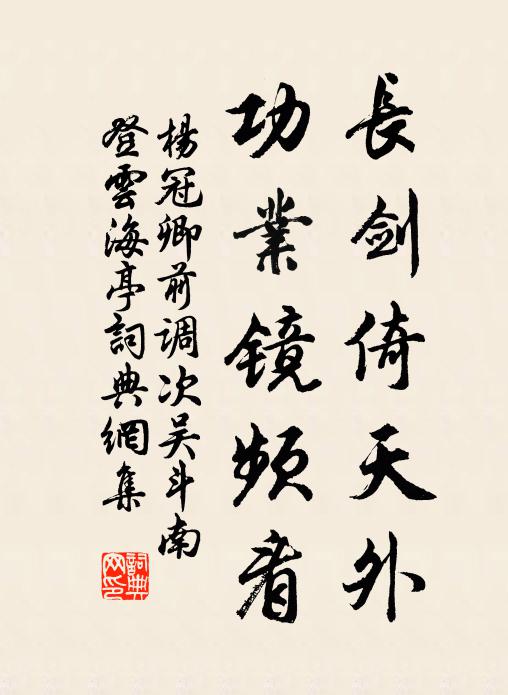 長剑倚天外
功業镜频看
楊冠卿前调次吴斗南
登雲海亭詞典網集
詞典
网印